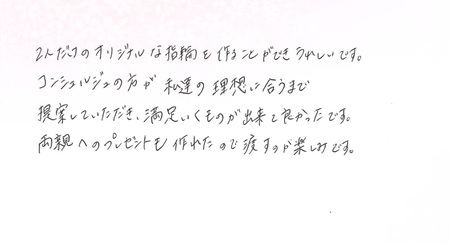 2人だけのオリジナルな指輪を作ることができうれしいです。
コンシェルジュの方が私達の理想に合うまで
提案していただき、満足いくものが出来て良かったです。
両親へのプレゼントも作れたので渡すのが楽しみです。